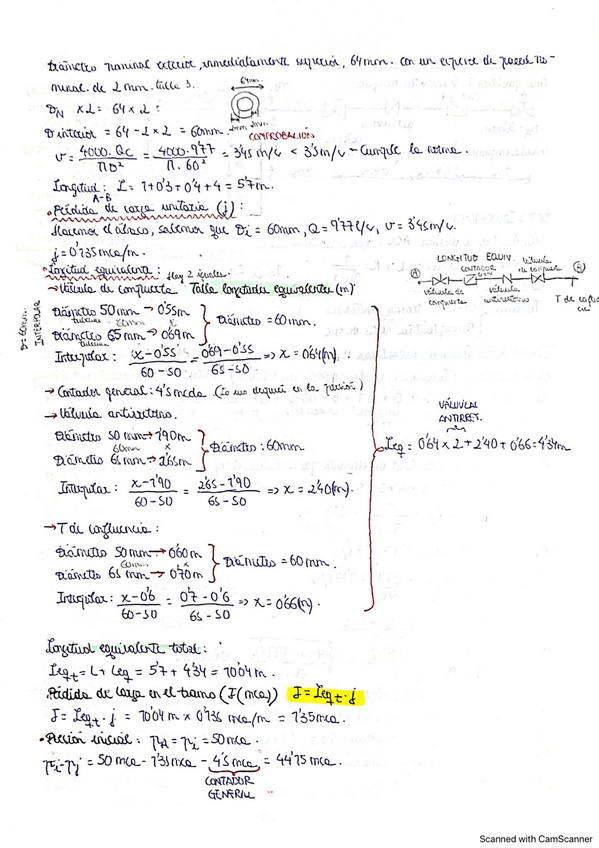 Diámetro nominal exterior, inmediatamente superior, 64mm. con un espesor de pared no-
minal de 2mm. tabla 3.
DN x2 = 64 x 2 :
64mm.
2mm 2mm
D interior = 64 - 2 x 2 = 60mm. COMPROBACIÓN
v = 4000.Qc / ΠD² = 4000.9'77 / Π.60² = 3'45m/s < 3'5m/s - Cumple la norma.
Longitud: L = 1+0'3+0'4+4 = 5'7m.
A-B
• Pérdida de carga unitaria (j):
Hacemos el ábaco, sabemos que Di = 60mm, Q = 9'77 l/s, v = 3'45m/s.
j = 0'135mca/m.
• Longitud equivalente: Hay 2 iguales.
LONGITUD EQUIV.
A
CONTADOR
válvula de compuerta
B
válvula de compuerta
válvula antirretorno
T de conflu
D=60mm. INTERPOLAR
→ Válvula de compuerta. Tabla longitudes equivalentes (m)
Diámetro 50mm → 0'55m
tubería 60mm x
Diámetro 65mm → 0'69m
tubería
Diámetro = 60mm.
Interpolar: x-0'55 / 60-50 = 0'69-0'55 / 65-50 => x = 0'64(m).
→ Contador general: 4'5mcda (lo
en la presión)
→ Válvula antirretorno.
Diámetro 50mm → 1'90m
60mm x
Diámetro 65mm → 2'65m
Diámetro: 60mm
Interpolar: x-1'90 / 60-50 = 2'65-1'90 / 65-50 => x = 2'40(m).
VÁLVULA ANTIRRET.
Leq = 0'64 x 2 + 2'40 + 0'66 = 4'34m
→ T de confluencia:
Diámetro 50mm → 0'60m
60mm x
Diámetro 65mm → 0'70m
Diámetro = 60mm.
Interpolar: x-0'6 / 60-50 = 0'7-0'6 / 65-50 => x = 0'66(m).
Longitud equivalente total:
Leqt = L + Leq = 5'7 + 4'34 = 10'04m.
Pérdida de carga en el tramo (J(mca)) J = Leqt · j
J = Leqt · j = 10'04m x 0'135 mca/m = 1'35mca.
• Presión inicial: PA = Pi = 50mca.
Pi-Pj = 50mca - 1'35mca - 4'5mca = 44'15mca.
CONTADOR
GENERAL
Scanned with CamScanner